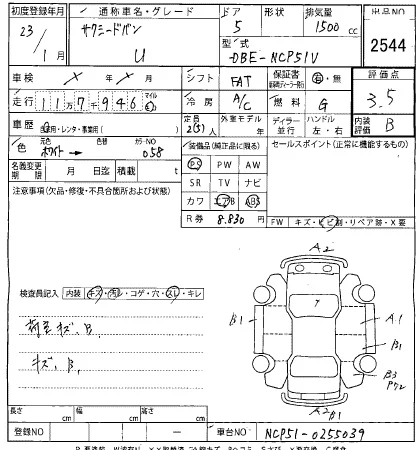 初度登録年月 通称車名・グレード ドア 形状 排気量 出品NO
23 / 1 月 サクシードバン U 5 1500 cc 2544
型式 DBE-NCP51V
車検 シフト FAT 保証書 有・無 評価点
走行 11万7千946 冷房 A/C 燃料 G 3.5
車歴 自家用・レンタ・事業用( ) 定員 2(5)人 外装モデル 年 ディーラー 並行 ハンドル 左・右 内装評価 B
色 元色 ホワイト → 色替 カラーNO 058 装備品(純正品に限る) セールスポイント(正常に機能するもの)
名義変更期限 月 日迄 積載 t PS PW AW
注意事項(欠品・修復・不具合箇所および状態) SR TV ナビ
カワ エアB ABS
R券 8,830円 FW キズ・ヒビ割・リペア跡・X要
A2
検査員記入 内装 キズ・汚レ・コゲ・穴・スレ・キレ
荷室キズ、B、
キズ、B、
7
B1 A1
B1
B3
P72
A2 B1
長さ cm 幅 cm 高さ cm
登録NO ー 車台NO NCP51-0255039